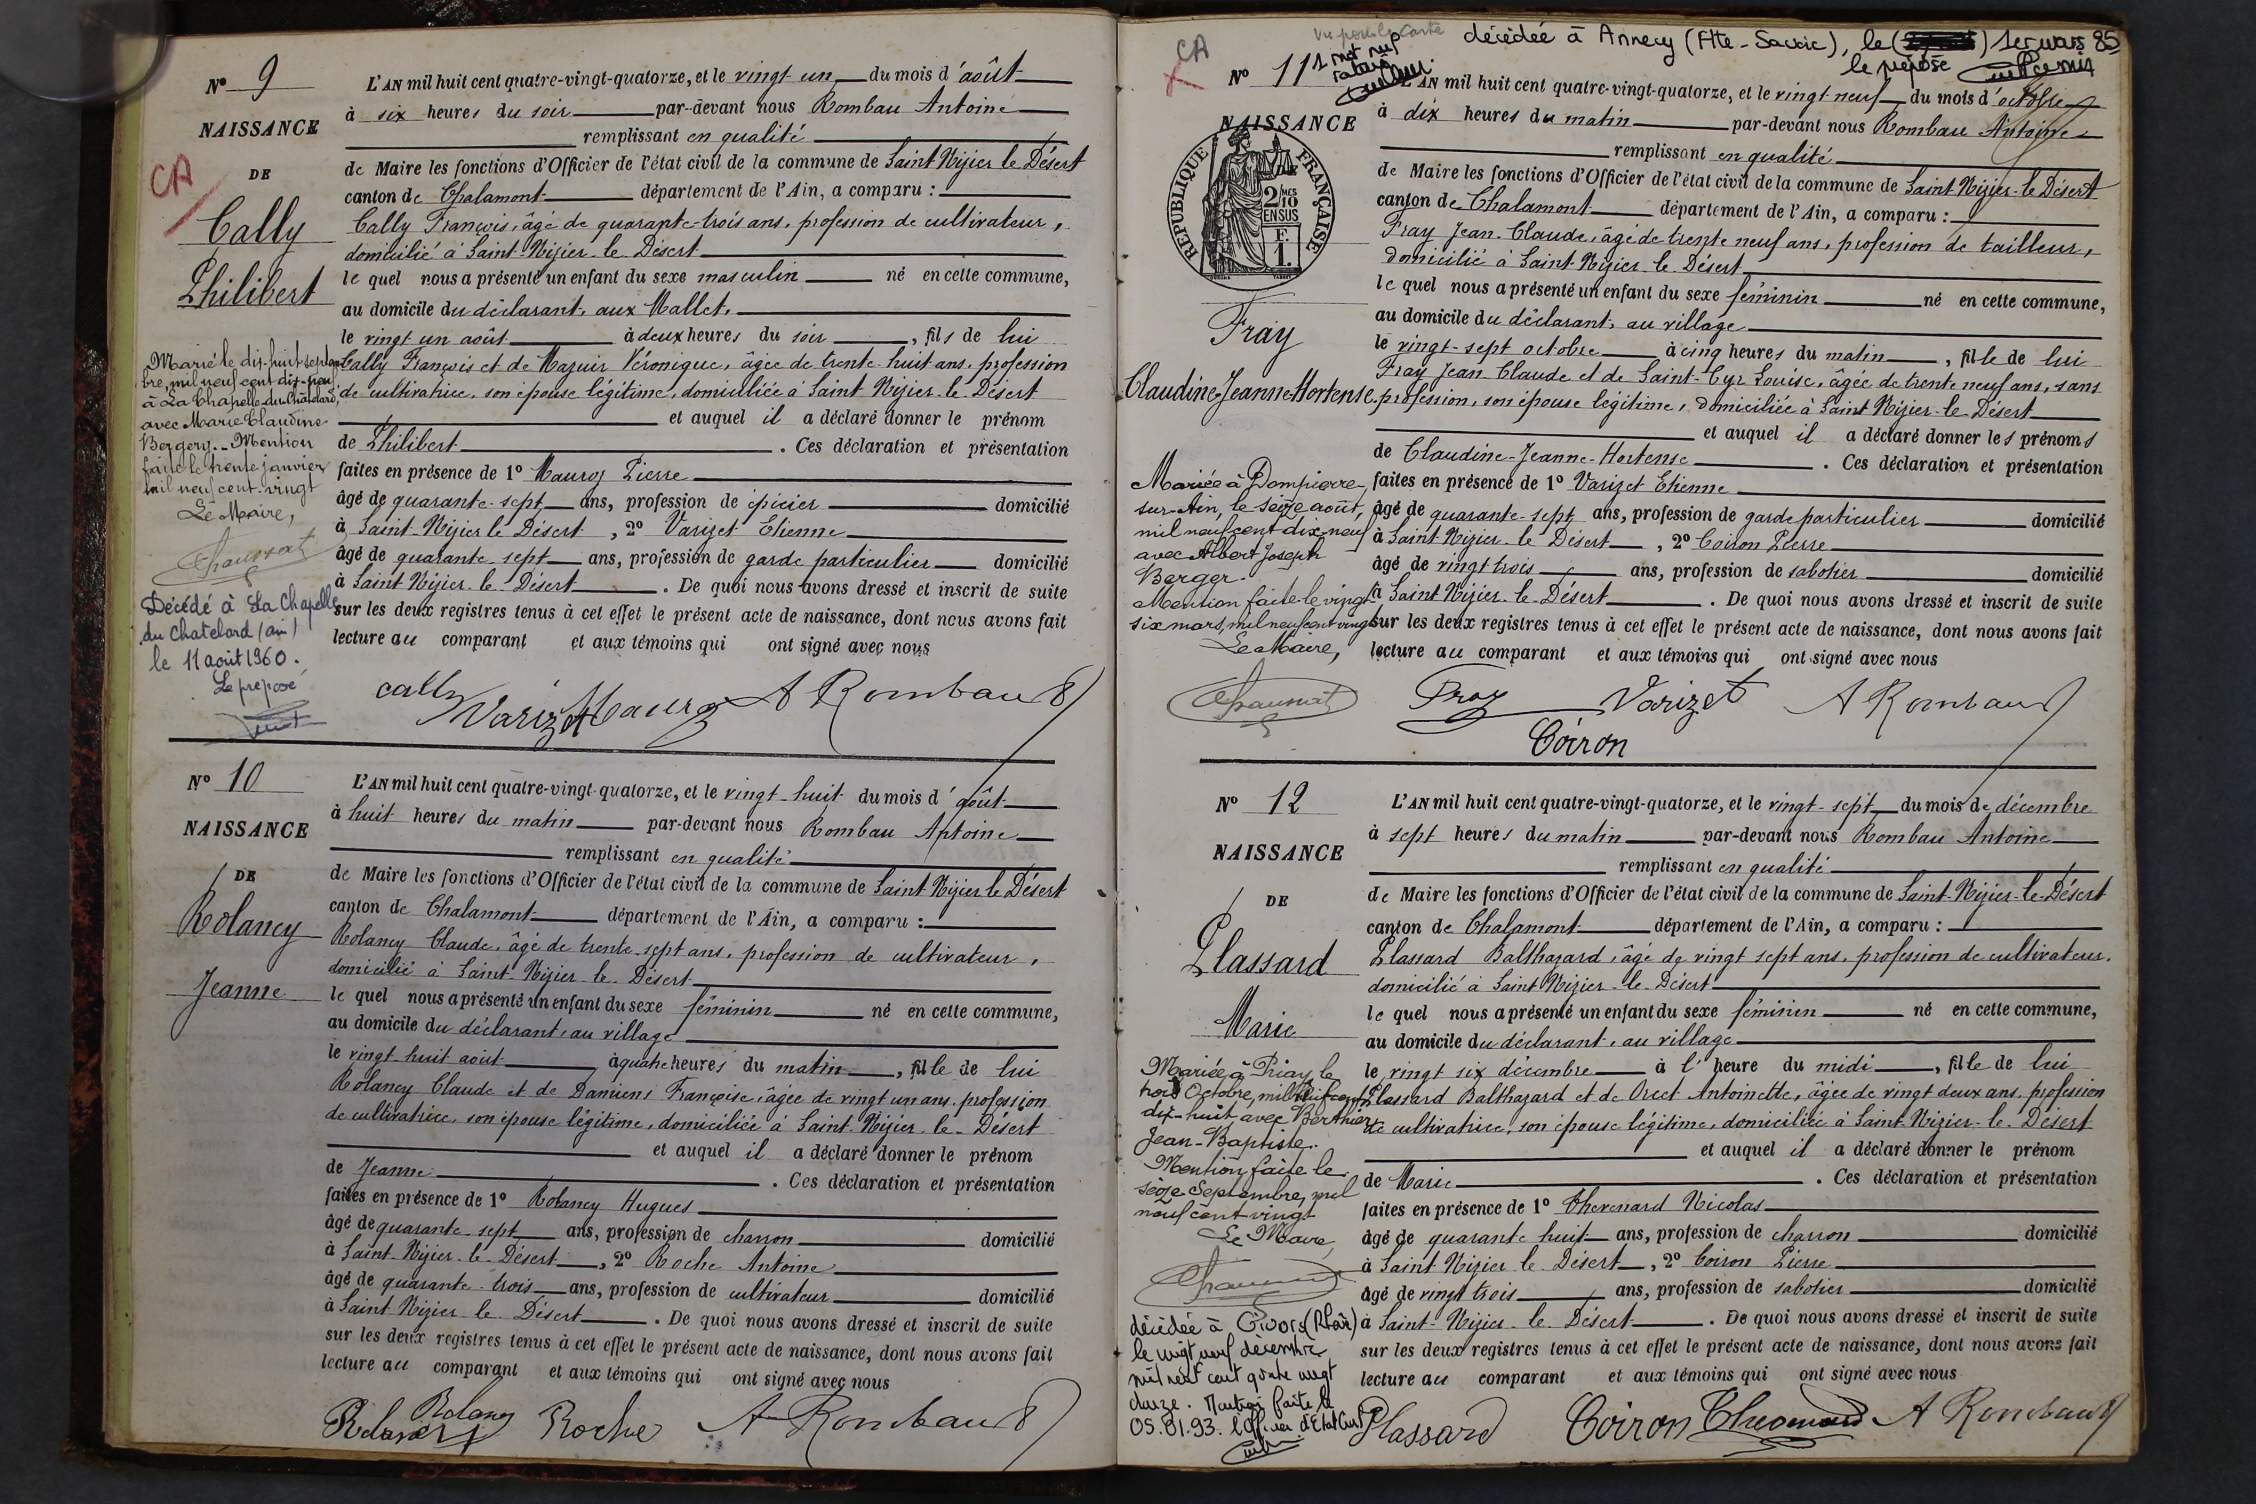 N° 9
NAISSANCE
DE
CA
Cally
Philibert
L'AN mil huit cent quatre-vingt-quatorze, et le vingt un du mois d'août
à six heures du soir par-devant nous Rombau Antoine
remplissant en qualité
de Maire les fonctions d'Officier de l'état civil de la commune de Saint Nizier le Désert
canton de Chalamont département de l'Ain, a comparu :
Cally François, âgé de quarante-trois ans, profession de cultivateur,
domicilié à Saint-Nizier-le-Désert
le quel nous a présenté un enfant du sexe masculin né en cette commune,
au domicile du déclarant, aux Mallets,
le vingt un août à deux heures du soir, fils de lui
Cally François et de Mazuir Véronique, âgée de trente-huit ans, profession
de cultivatrice, son épouse légitime, domiciliée à Saint Nizier-le-Désert
et auquel il a déclaré donner le prénom
de Philibert. Ces déclaration et présentation
faites en présence de 1° Mauroz Pierre
âgé de quarante-sept ans, profession de épicier domicilié
à Saint-Nizier le Désert, 2° Varizet Etienne
âgé de quarante-sept ans, profession de garde particulier domicilié
à Saint Nizier-le-Désert. De quoi nous avons dressé et inscrit de suite
sur les deux registres tenus à cet effet le présent acte de naissance, dont nous avons fait
lecture au comparant et aux témoins qui ont signé avec nous
Cally Varizet Mauroz A Rombau
Marié le dix-huit septem
bre, mil neuf cent dix-neuf
à La Chapelle-du-Châtelard,
avec Marie Claudine
Bergery. Mention
faite le trente janvier
mil neuf cent-vingt
Le Maire,
Chaussat
Décédé à La Chapelle
du Chatelard (ain)
le 11 août 1960.
Le préposé
N° 10
NAISSANCE
DE
Rolancy
Jeanne
L'AN mil huit cent quatre-vingt-quatorze, et le vingt-huit du mois d'août
à huit heures du matin par-devant nous Rombau Antoine
remplissant en qualité
de Maire les fonctions d'Officier de l'état civil de la commune de Saint Nizier le Désert
canton de Chalamont département de l'Ain, a comparu :
Rolancy Claude, âgé de trente-sept ans, profession de cultivateur,
domicilié à Saint-Nizier-le-Désert
le quel nous a présenté un enfant du sexe féminin né en cette commune,
au domicile du déclarant, au village
le vingt-huit août à quatre heures du matin, fille de lui
Rolancy Claude et de Damiens Françoise, âgée de vingt un ans, profession
de cultivatrice, son épouse légitime, domiciliée à Saint-Nizier-le-Désert
et auquel il a déclaré donner le prénom
de Jeanne. Ces déclaration et présentation
faites en présence de 1° Rolancy Hugues
âgé de quarante-sept ans, profession de charron domicilié
à Saint-Nizier-le-Désert, 2° Roche Antoine
âgé de quarante-trois ans, profession de cultivateur domicilié
à Saint Nizier-le-Désert. De quoi nous avons dressé et inscrit de suite
sur les deux registres tenus à cet effet le présent acte de naissance, dont nous avons fait
lecture au comparant et aux témoins qui ont signé avec nous
Rolancy Rolancy Roche A Rombau
CA
Vu pour la carte
décédée à Annecy (Hte-Savoie), le () 1er mars 85
le préposé
N° 11
1 mot nul
rature
NAISSANCE
DE
RÉPUBLIQUE FRANÇAISE
2 MES
10
EN SUS
F.
1.
Fray
Claudine-Jeanne-Hortense
L'AN mil huit cent quatre-vingt-quatorze, et le vingt neuf du mois d'octobre
à dix heures du matin par-devant nous Rombau Antoine
remplissant en qualité
de Maire les fonctions d'Officier de l'état civil de la commune de Saint Nizier-le-Désert
canton de Chalamont département de l'Ain, a comparu :
Fray Jean-Claude, âgé de trente neuf ans, profession de tailleur,
domicilié à Saint-Nizier-le-Désert
le quel nous a présenté un enfant du sexe féminin né en cette commune,
au domicile du déclarant, au village
le vingt-sept octobre à cinq heures du matin, fille de lui
Fray Jean-Claude et de Saint-Cyr Louise, âgée de trente neuf ans, sans
profession, son épouse légitime, domiciliée à Saint Nizier-le-Désert
et auquel il a déclaré donner les prénoms
de Claudine-Jeanne-Hortense. Ces déclaration et présentation
faites en présence de 1° Varizet Etienne
âgé de quarante-sept ans, profession de garde particulier domicilié
à Saint-Nizier-le Désert, 2° Coiron Pierre
âgé de vingt trois ans, profession de sabotier domicilié
à Saint Nizier-le-Désert. De quoi nous avons dressé et inscrit de suite
sur les deux registres tenus à cet effet le présent acte de naissance, dont nous avons fait
lecture au comparant et aux témoins qui ont signé avec nous
Fray Varizet A Rombau
Coiron
Mariée à Dompierre-
sur-Ain, le seize août,
mil neuf cent dix-neuf
avec Albert Joseph
Berger.
Mention faite le vingt
six mars, mil neuf cent vingt
Le Maire,
Chaussat
N° 12
NAISSANCE
DE
Plassard
Marie
L'AN mil huit cent quatre-vingt-quatorze, et le vingt-sept du mois de décembre
à sept heures du matin par-devant nous Rombau Antoine
remplissant en qualité
de Maire les fonctions d'Officier de l'état civil de la commune de Saint-Nizier-le-Désert
canton de Chalamont département de l'Ain, a comparu :
Plassard Balthazard, âgé de vingt sept ans, profession de cultivateur,
domicilié à Saint Nizier-le-Désert
le quel nous a présenté un enfant du sexe féminin né en cette commune,
au domicile du déclarant, au village
le vingt six décembre à l'heure du midi, fille de lui
Plassard Balthazard et de Orcet Antoinette, âgée de vingt deux ans, profession
de cultivatrice, son épouse légitime, domiciliée à Saint Nizier-le-Désert
et auquel il a déclaré donner le prénom
de Marie. Ces déclaration et présentation
faites en présence de 1° Thevenard Nicolas
âgé de quarante huit ans, profession de charron domicilié
à Saint Nizier le Désert, 2° Coiron Pierre
âgé de vingt trois ans, profession de sabotier domicilié
à Saint-Nizier-le-Désert. De quoi nous avons dressé et inscrit de suite
sur les deux registres tenus à cet effet le présent acte de naissance, dont nous avons fait
lecture au comparant et aux témoins qui ont signé avec nous
Plassard Coiron Thevenard A Rombau
Mariée à Priay, le
trois Octobre, mil huit cent
dix-huit avec Berthier
Jean-Baptiste.
Mention faite le
seize Septembre, mil
neuf cent-vingt
Le Maire,
décédée à Givors (Rhône)
le vingt neuf décembre
mil neuf cent quatre vingt
douze. Mention faite le
05.01.93. l'Officier d'Etat Civil